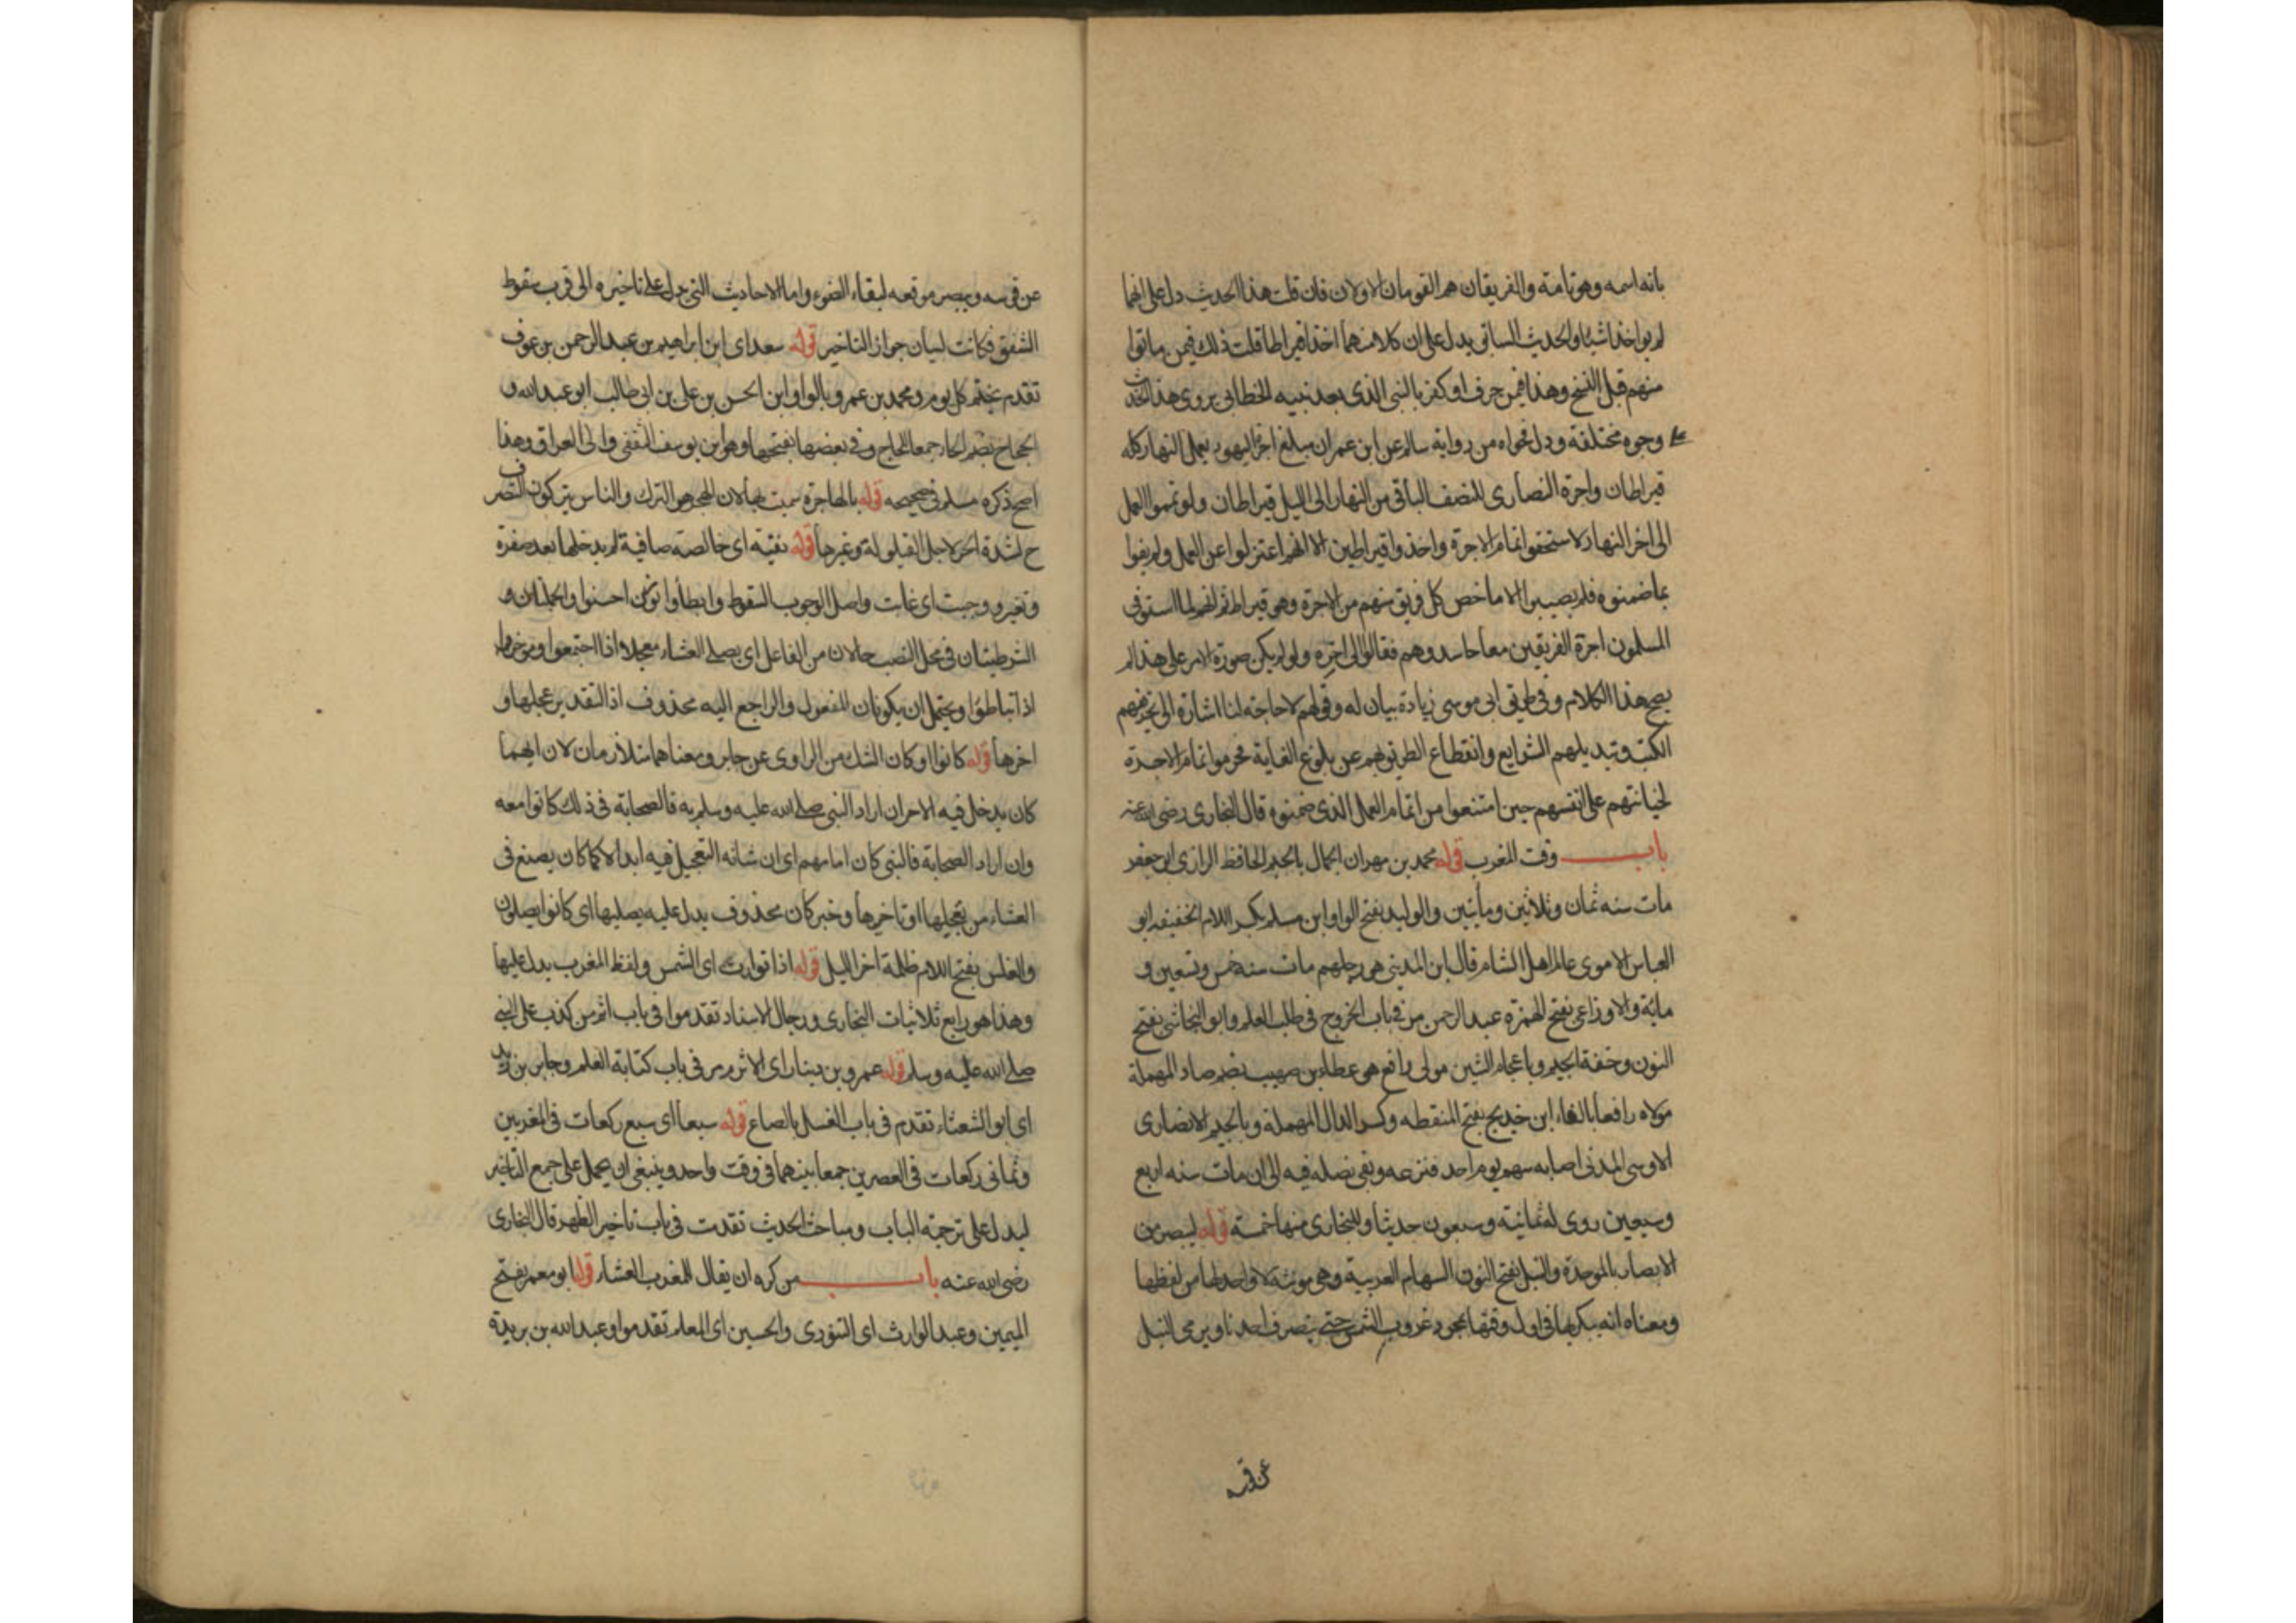 بانه اسمه وهو تامة والفريقان هم القومان الاولان فان قلت هذا الحديث دل على انهما
لم يواخذا شيئا والحديث السابق يدل على ان كلا منهما اخذ قيراطا قلت ذلك فيمن ماتوا
منهم قبل النسخ وهذا فيمن حرف او كفر بالنبى الذى بعد نبيه الخطابى يروى هذا الحديث
على وجوه مختلفة ودل فحواه من رواية سالم عن ابن عمر ان مبلغ اجرة اليهود بعمل النهار كله
قيراطان واجرة النصارى للنصف الباقى من النهار الى الليل قيراطان ولو تمموا العمل
الى اخر النهار لاستحقوا تمام الاجرة واخذوا قيراطين الا انهم اعتزلوا عن العمل ولم يفوا
بما ضمنوه فلم يصيبوا الا ما خص كل فريق منهم من الاجرة وهو قيراط ثم انهم لما استوفى
المسلمون اجرة الفريقين معا حاسدوهم فقالوا الى اخره ولو لم يكن صورة الامر على هذا لم
يصح هذا الكلام وفى طريق ابى موسى زيادة بيان له وقولهم لا حاجة لنا اشارة الى تحريفهم
الكتب وتبديلهم الشرايع وانقطاع الطريق بهم عن بلوغ الغاية فحرموا تمام الاجرة
لخيانتهم على انفسهم حين امتنعوا من اتمام العمل الذى ضمنوه قال البخارى رضى الله عنه
باب وقت المغرب قوله محمد بن مهران الجمال بالجيم الحافظ الرازى ابو جعفر
مات سنه ثمان وثلاثين ومأتين والوليد بفتح الواو ابن مسلم بكسر اللام الخفيفه ابو
العباس الاموى عالم اهل الشام قال ابن المدينى هو رجلهم مات سنه خمس وتسعين و
مائة والاوزاعى بفتح الهمزه عبد الرحمن مر فى باب الخروج فى طلب العلم وابو النجاشى بفتح
النون وخفة الجيم وباعجام الشين مولى رافع هو عطاء بن صهيب بضم صاد المهملة
مولاه رافعا بالفاء ابن خديج بفتح المنقطه وكسر الدال المهملة وبالجيم الانصارى
الاوسى المدنى اصابه سهم يوم احد فنزعه وبقى نصله فيه الى ان مات سنه اربع
وسبعين روى له ثمانية وسبعون حديثا وللبخارى منها خمسة قوله ليبصر من
الابصار بالموحدة والنبل بفتح النون السهام العربية وهى مونثة لا واحد لها من لفظها
ومعناه انه يبكر بها فى اول وقتها بمجرد غروب الشمس حتى ينصرف احدنا ويرمى النبل
عن قوسه
عن قوسه ويبصر موقعه لبقاء الضوء واما الاحاديث التى تدل على تاخيره الى قرب سقوط
الشفق فكانت لبيان جواز التاخير قوله سعد اى ابن ابراهيم بن عبد الرحمن بن عوف
تقدم بختم كل يوم ومحمد بن عمرو بالواو ابن الحسن بن على بن ابى طالب ابو عبد الله و
الحجاج بضم الحاء جمعا للحاج وفى بعضها بفتحها وهو ابن يوسف الثقفى والى العراق وهذا
اصح ذكره مسلم فى صحيحه قوله بالهاجرة سميت بها لان الهجر هو الترك والناس يتركون التصرف
ح لشدة الحر لاجل القيلولة وغيرها قوله نقية اى خالصة صافية لم يدخلها بعد صفرة
وتغير ووجبت اى غابت واصل الوجوب السقوط وابطأوا بوزن احسنوا والجملتان
الشرطيتان فى محل النصب حالان من الفاعل اى يصلى العشاء معجلا اذا اجتمعوا ومؤخرا
اذا تباطؤا ويحتمل ان يكونا من المفعول والراجع اليه محذوف اذ التقدير عجلها و
اخرها قوله كانوا او كان الشك من الراوى عن جابر ومعناهما متلازمان لان ايهما
كان يدخل فيه الاخر ان اراد النبى صلى الله عليه وسلم به فالصحابة فى ذلك كانوا معه
وان اراد الصحابة فالنبى كان امامهم اى ان شانه التعجيل فيه ابدا لا كما كان يصنع فى
العشاء من تعجيلها او تاخيرها وخبر كان محذوف يدل عليه يصليها اى كانوا يصلون
والغلس بفتح اللام ظلمة اخر الليل قوله اذا توارت اى الشمس ولفظ المغرب يدل عليها
وهذا هو رابع ثلاثيات البخارى ورجال الاسناد تقدموا فى باب اثم من كذب على النبى
صلى الله عليه وسلم قوله عمرو بن دينار اى الاثرم مر فى باب كتابة العلم وجابر بن زيد
اى ابو الشعثاء تقدم فى باب الغسل بالصاع قوله سبعا اى سبع ركعات فى المغربين
وثمانى ركعات فى العصرين جمعا بينهما فى وقت واحد وينبغى ان يحمل على جمع التاخير
ليدل على ترجمة الباب ومباحث الحديث تقدمت فى باب تاخير الظهر قال البخارى
رضى الله عنه باب من كره ان يقال للمغرب العشاء قوله ابو معمر بفتح
الميمين وعبد الوارث اى التنورى والحسين اى المعلم تقدموا وعبد الله بن بريدة